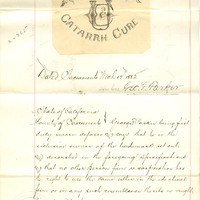 CATARRH CURE
Dated Sacramento
1882
Geo. T. Parker
State of California
County of Sacramento } George T. Parker being first
duly sworn deposes & says that he is the
exclusive owner of the trademark set out
& described in the foregoing specifications
& that no other person firm or corporation has
any right to use the same either in the identical
form or in any such resemblance thereto as might